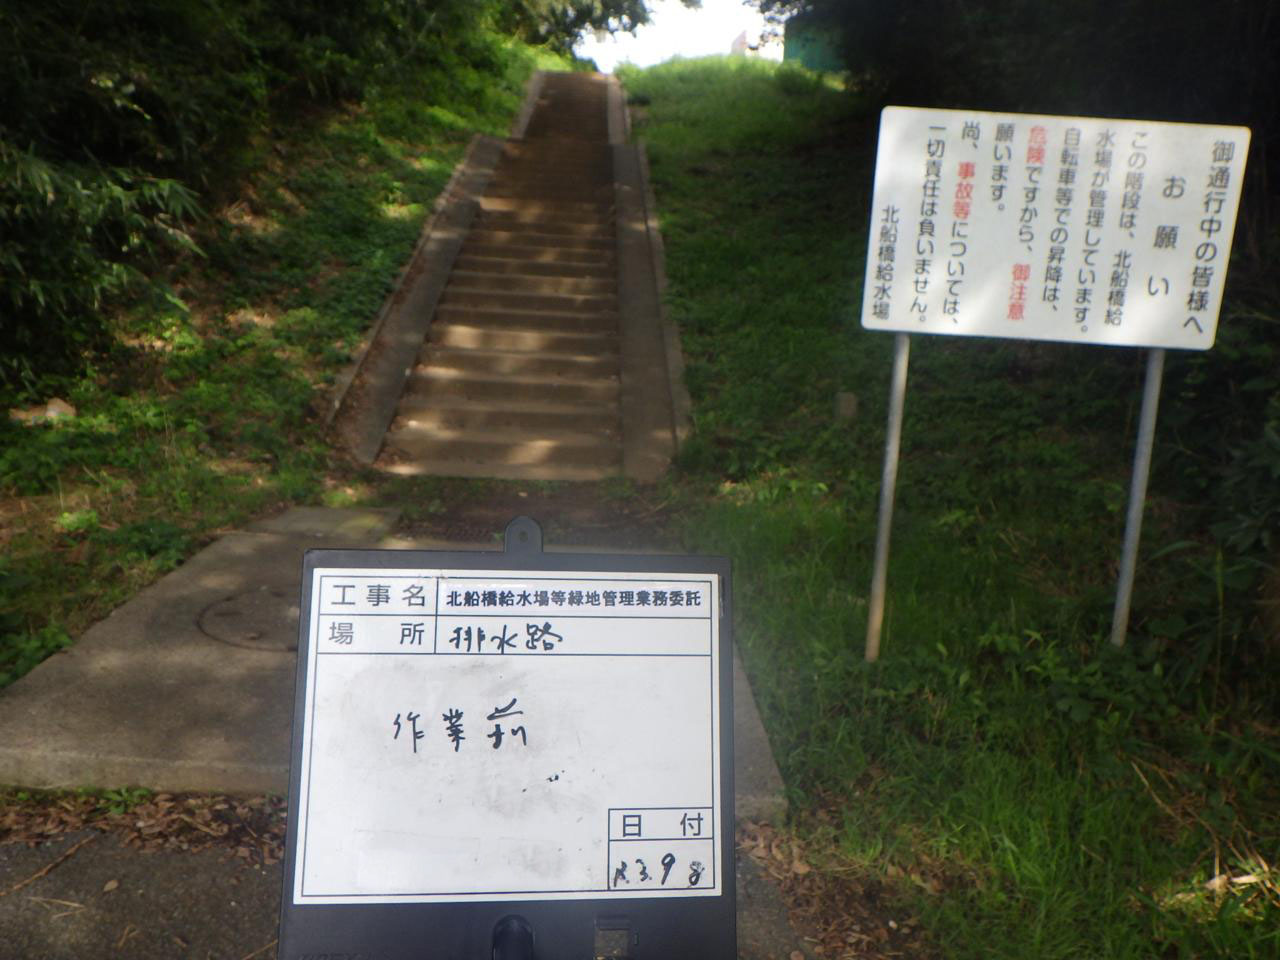 御通行中の皆様へ
お願い
この階段は、北船橋給
水場が管理しています。
自転車等での昇降は、
危険ですから、御注意
願います。
尚、事故等については、
一切責任は負いません。
北船橋給水場
工事名 北船橋給水場等緑地管理業務委託
場所 排水路
作業前
日付
R.3.9 8